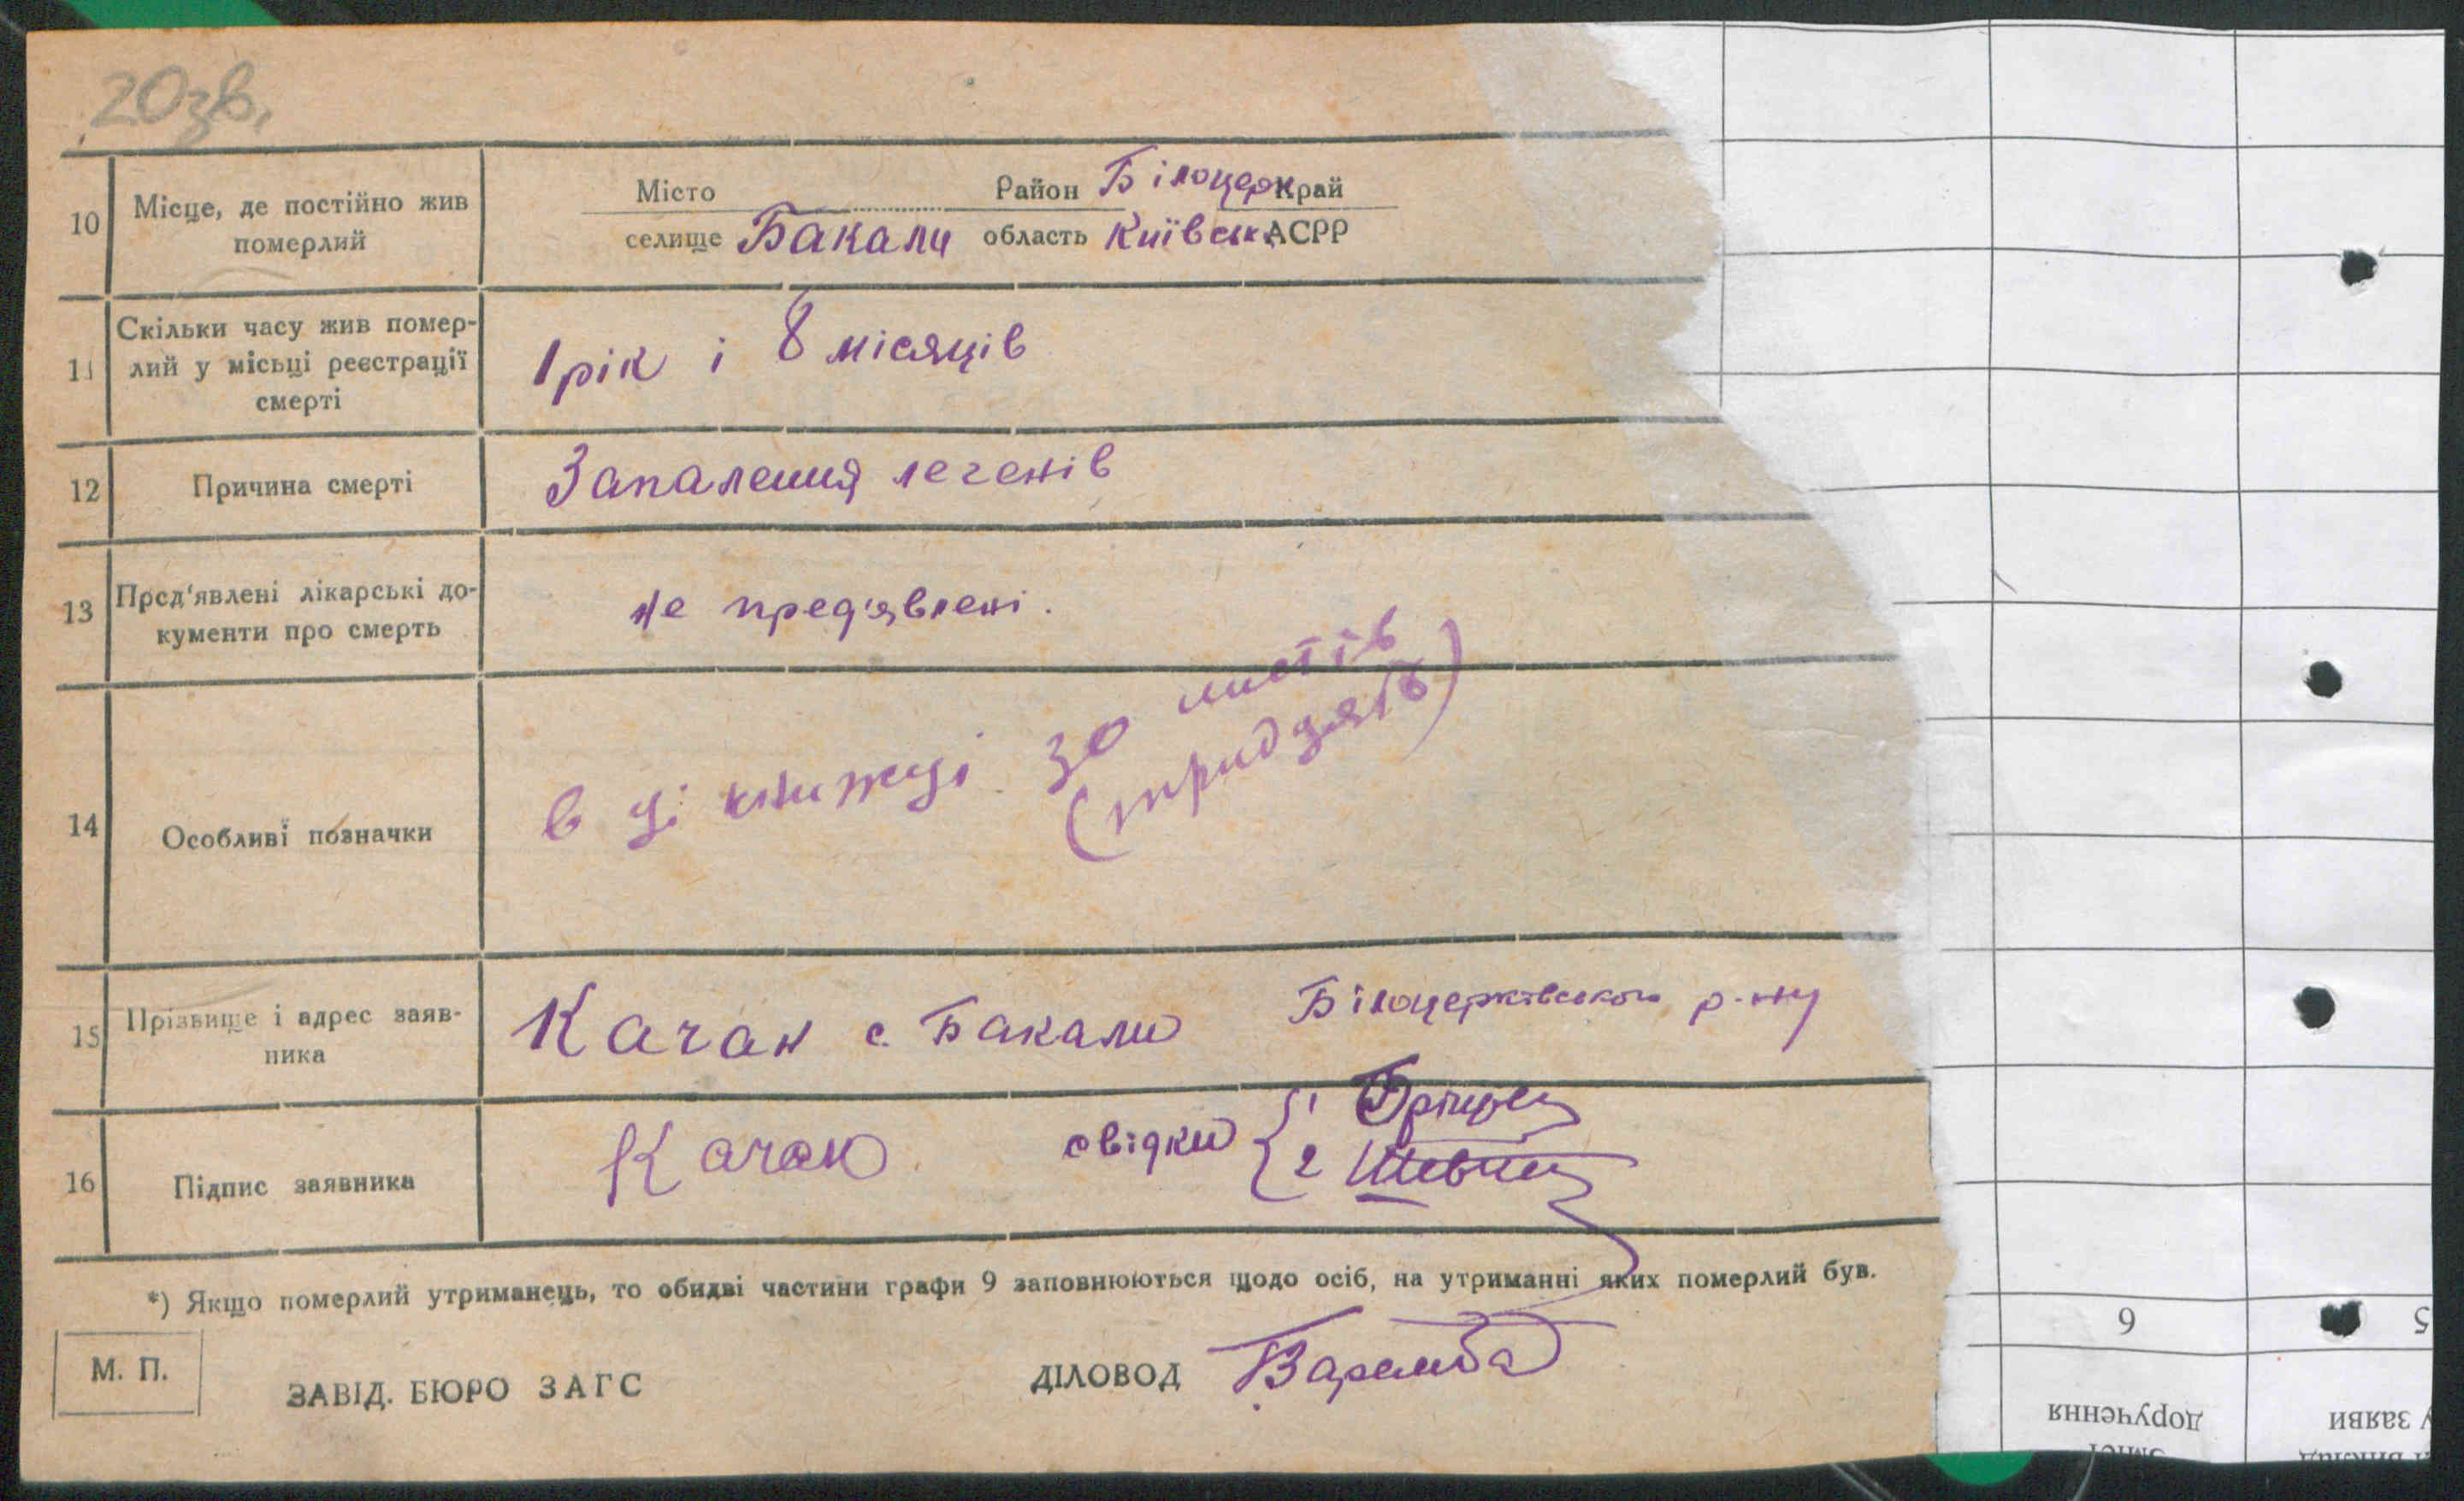 20зв.
10 Місце, де постійно жив померлий
Місто Район Білоцерк край
селище Бакали область Київськ АСРР
11 Скільки часу жив помер-
лий у місьці реєстрації
смерті
1 рік і 8 місяців
12 Причина смерті
Запалення легенів
13 Пред'явлені лікарські до-
кументи про смерть
не пред'явлені.
14 Особливі позначки
в ці книжці 30 листів
(тридзять)
15 Прізвище і адрес заяв-
ника
Качан с. Бакали Білоцерківського р-ну
16 Підпис заявника
Качан свідки { 1
2 Швець
*) Якщо померлий утриманець, то обидві частини графи 9 заповнюються щодо осіб, на утриманні яких померлий був.
М. П.
ЗАВІД. БЮРО ЗАГС
ДІЛОВОД
6
5
доручення
у заяви
зміст
виклад